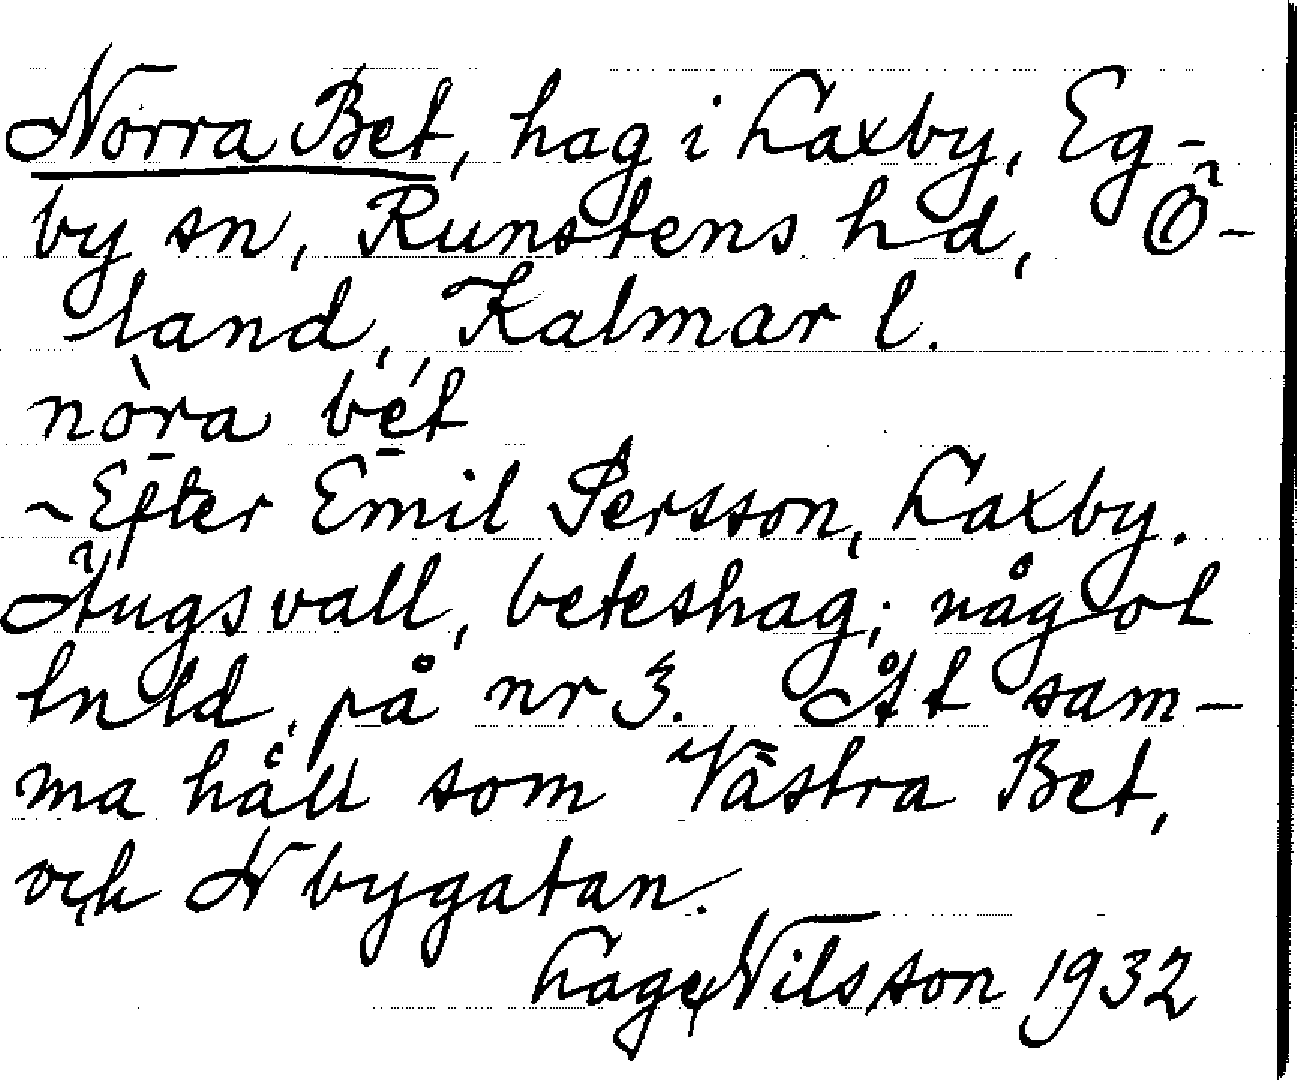 Norra Bet, hag i Laxby, Eg-
by sn, Runstens hd, Ö-
land, Kalmar l.
nòra bét
~ Efter Emil Persson, Laxby.
Ängsvall, beteshag; något
kuld. på nr 3. Åt sam-
ma håll som Västra Bet,
och N bygatan.
Lage Nilsson 1932